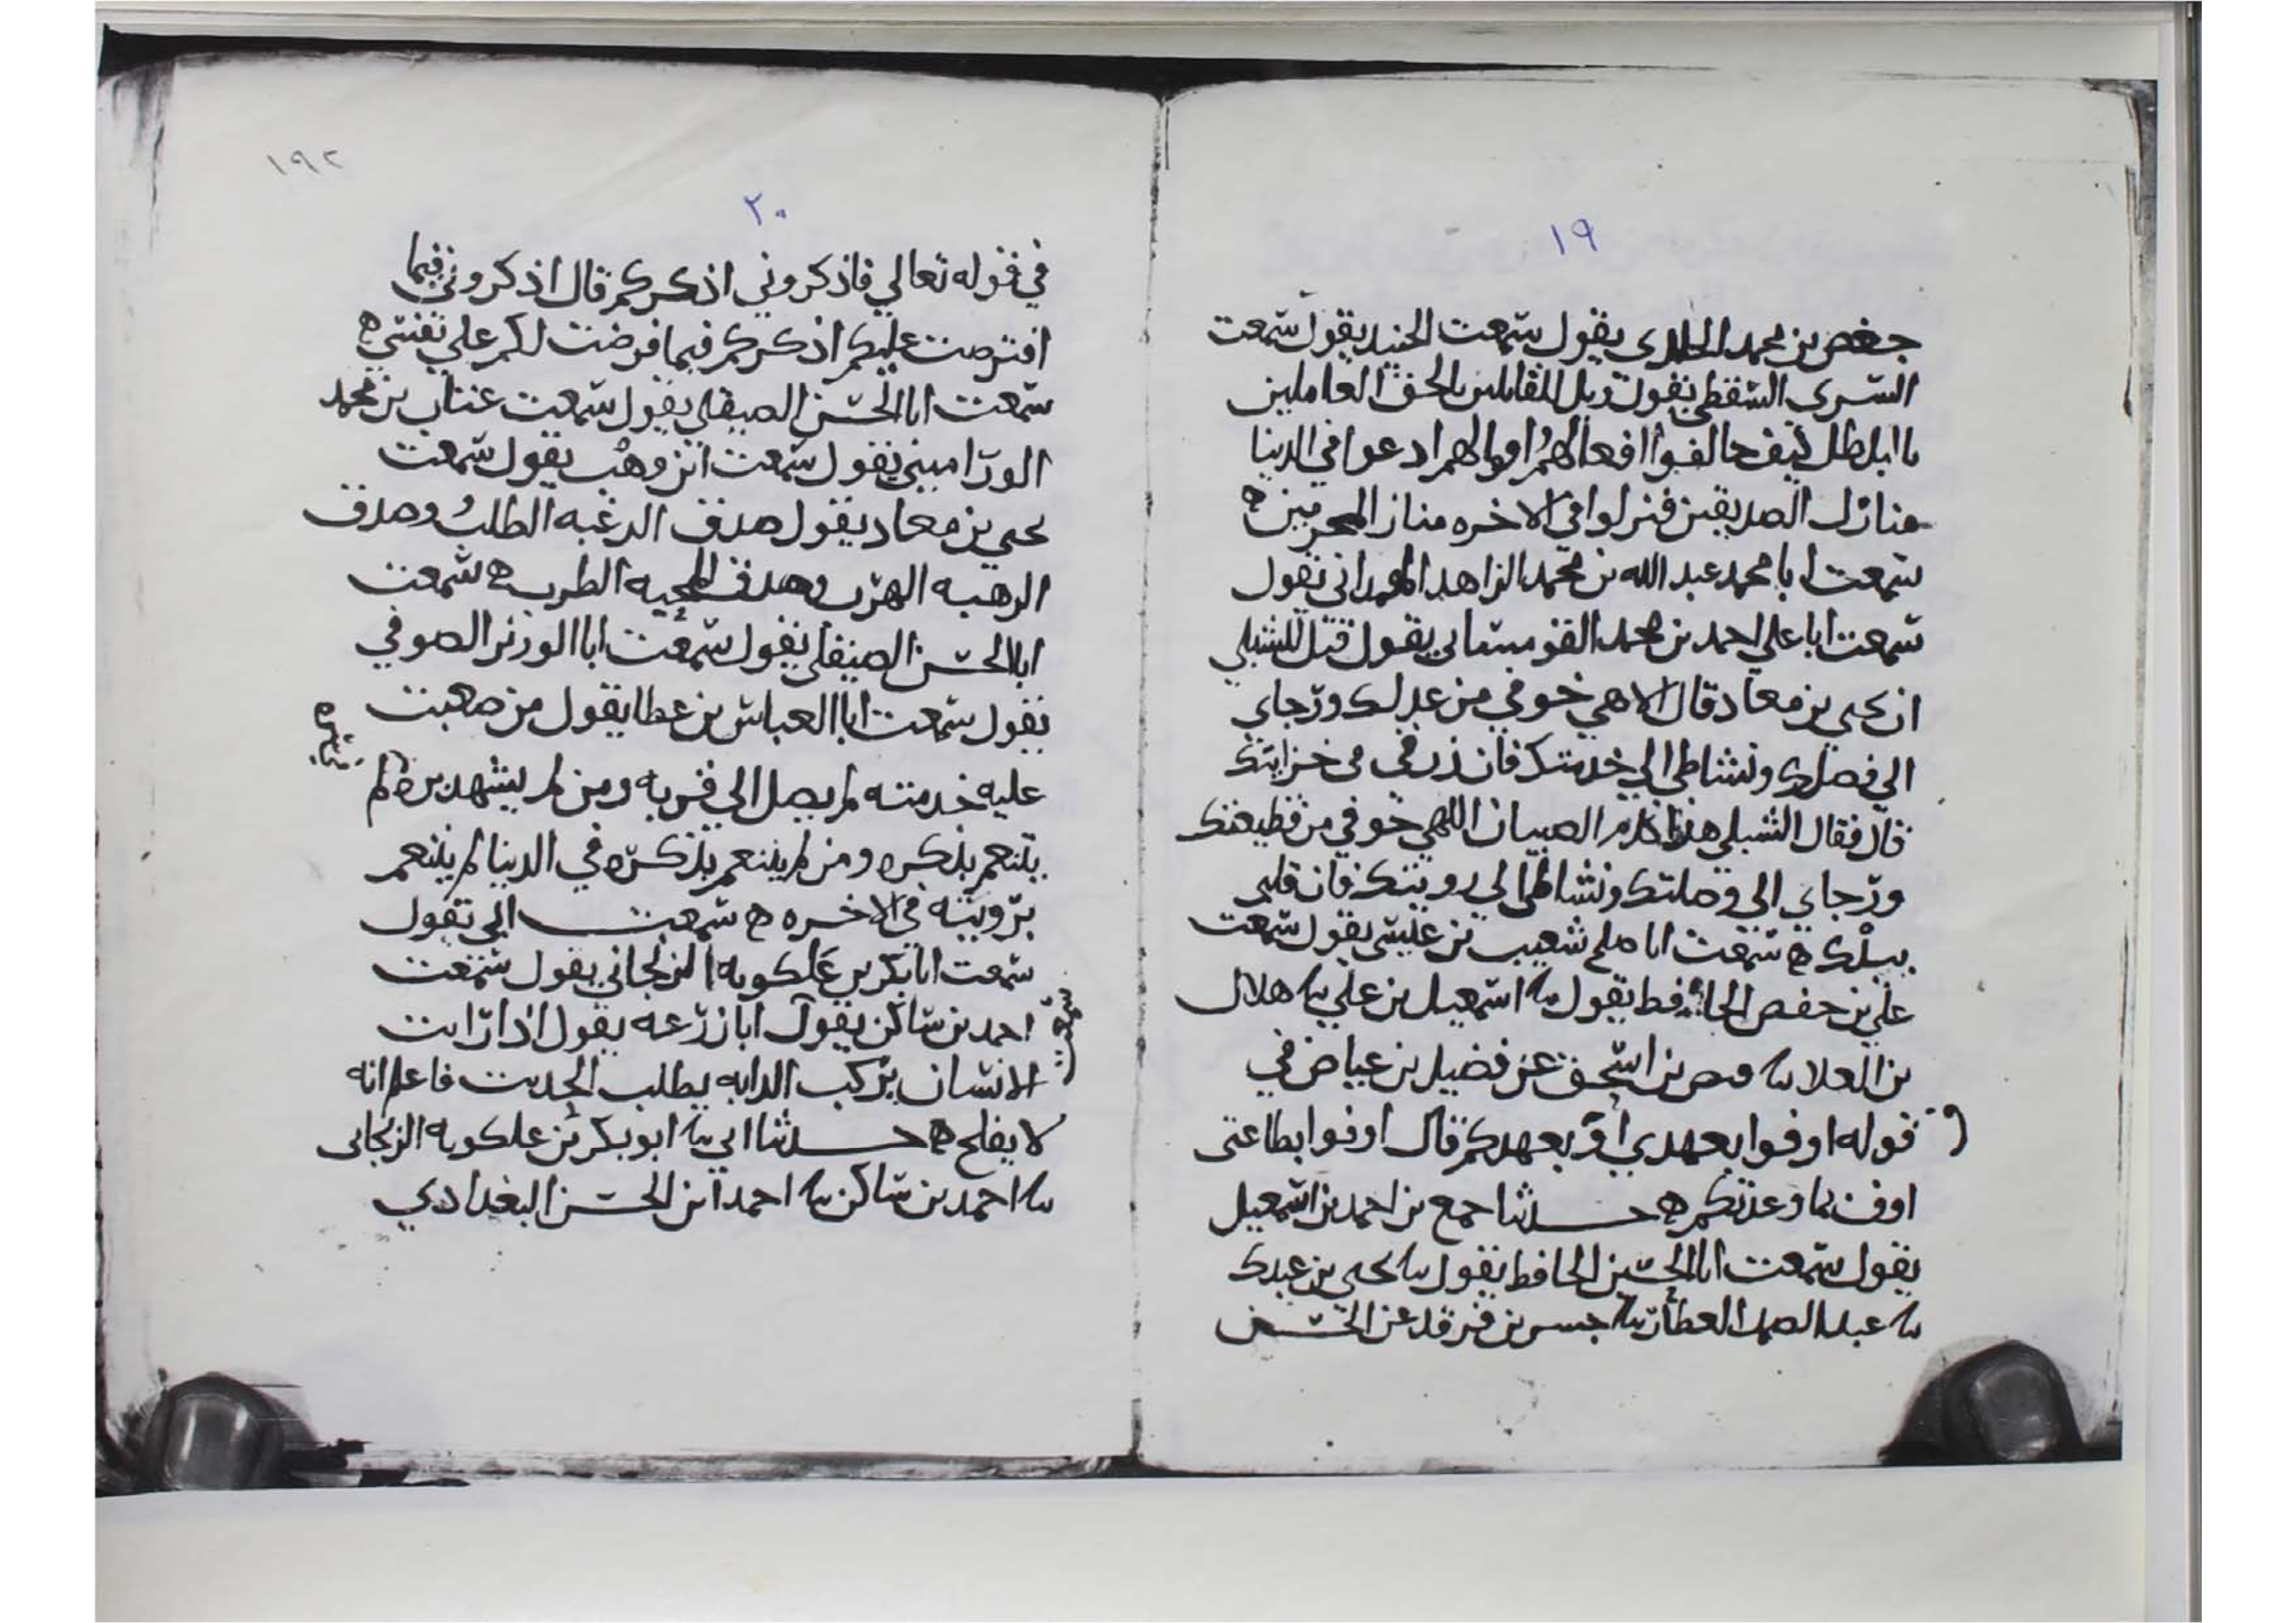 ١٩
جعفر بن محمد الخلدي يقول سمعت الجنيد يقول سمعت
السري السقطي يقول ويل للقائلين بالحق العاملين
بالباطل كيف خالفوا افعالهم اقوالهم ادعوا في الدنيا
منازل الصديقين فنزلوا في الاخره منازل المجرمين ه
سمعت ابا محمد عبد الله بن محمد الزاهد يقول
سمعت ابا علي احمد بن محمد القومساني يقول قيل للشبلي
ان يحيي بن معاذ قال الاهي خوفي من عدلك ورجاي
الي فضلك ونشاطي الي خدمتك فان رزقي من خزانتك
قال فقال الشبلي هذا كلام الصبيان الاهي خوفي من قطيعتك
ورجاي الي وصلتك ونشاطي الي رويتك فان قلبي
بيدك ه سمعت ابا صلح شعيب بن علي يقول سمعت
علي بن حفص الحافظ يقول سا اسمعيل بن علي سا هلال
بن العلا سا بن اسحق عن فضيل بن عياض في
قوله اوفوا بعهدي اوف بعهدكم قال اوفوا بطاعتي
اوف بما وعدتكم ه حدثنا جمع بن احمد بن اسمعيل
يقول سمعت ابا الحسين الحافظ يقول سا يحيي بن عبدك
سا عبد الصمد العطار سا جسر بن فرقد عن الحسن
١٩٢
٢٠
في قوله تعالي فاذكروني اذكركم قال اذكروني فيما
افترضت عليكم اذكركم فيما فرضت لكم علي نفسي ه
سمعت ابا الحسن الصيقلي يقول سمعت عتاب بن محمد
الوراميني يقول سمعت ابن وهب يقول سمعت
يحيي بن معاذ يقول صدق الرغبه الطلب وصدق
الرهبه الهرب وصدق المحبه الطرب ه سمعت
ابا الحسن الصيقلي يقول سمعت ابا الوزير الصوفي
يقول سمعت ابا العباس بن عطا يقول من صعبت
عليه خدمته لم يصل الي قربه ومن لم يشهد بره لم
يتنعم بذكره ومن لم يتنعم بذكره في الدنيا لم يتنعم
برويته في الاخره ه سمعت ابي يقول
سمعت ابا بكر بن علكويه الزنجاني يقول سمعت
احمد بن ساكن يقول ابا زرعه يقول اذا رايت
سمعت
الانسان يركب الدابه يطلب الحديث فاعلم انه
لا يفلح ه حدثنا ابي سا ابو بكر بن علكويه الزنجاني
سا احمد بن ساكن سا احمد ابن الحسن البغدادي